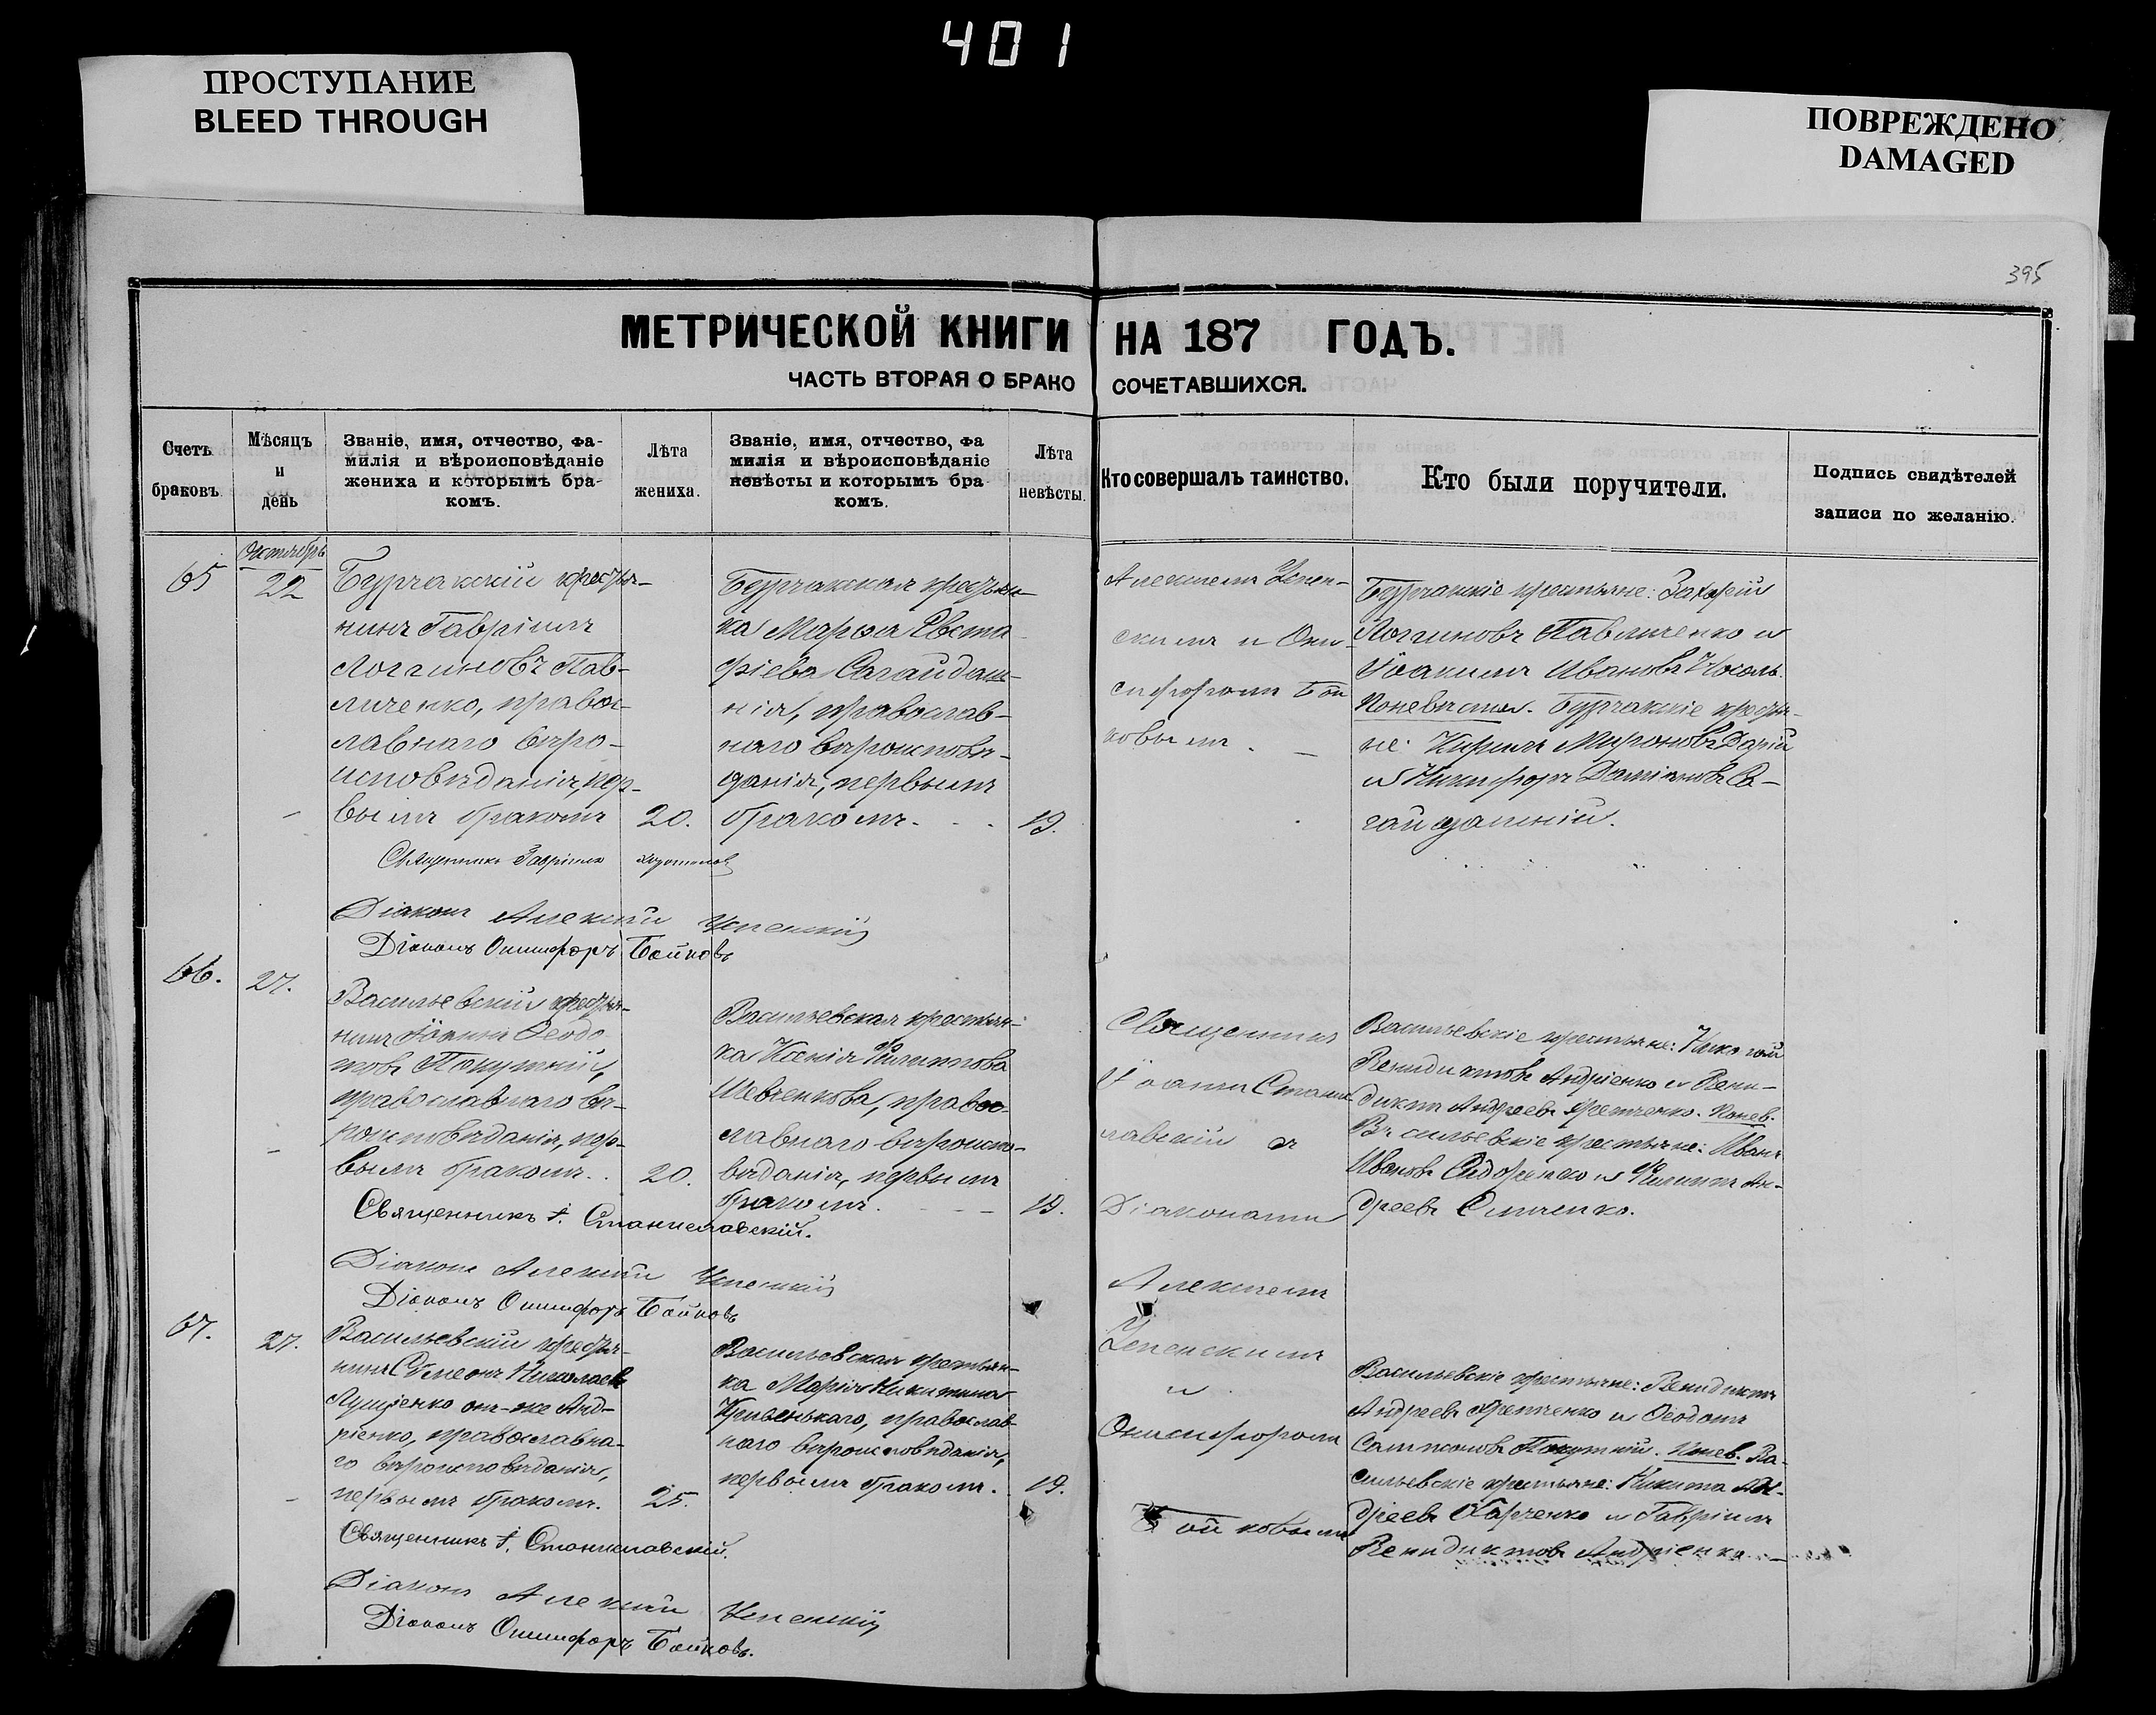 401
ПРОСТУПАНИЕ
BLEED THROUGH
ПОВРЕЖДЕНО
DAMAGED
395
МЕТРИЧЕСКОЙ КНИГИ НА 187 ГОДЪ.
ЧАСТЬ ВТОРАЯ О БРАКО СОЧЕТАВШИХСЯ.
Счетъ
браковъ.
Мѣсяцъ
и
день
Званіе, имя, отчество, фа-
милія и вѣроисповѣданіе
жениха и которымъ бра-
комъ.
Лѣта
жениха.
Званіе, имя, отчество, фа
милія и вѣроисповѣданіе
невѣсты и которымъ бра
комъ.
Лѣта
невѣсты.
Кто совершалъ таинство.
Кто были поручители.
Подпись свидѣтелей
записи по желанію.
65
Октябрь
22
Бурчакскій крестья-
нинъ Гавріилъ
Логгиновъ Пав-
личенко, правос-
лавнаго вѣро-
исповѣданія, пер-
вымъ бракомъ
20.
Бурчакская крестьян-
ка Марѳа Евста-
фіева Сагайдаш-
нія, православ-
наго вѣроисповѣ-
данія, первымъ
бракомъ. - -
19.
Алексіемъ Успен-
скимъ и Они-
сифоромъ Бой
ковымъ. —
Бурчакскіе крестьяне: Захарій
Логгиновъ Павличенко и
Іоакимъ Ивановъ
По невѣстѣ. Бурчакскіе крестья-
не: Кирилъ Мироновъ
и Никифоръ Даміановъ Са-
гайдашній.
Священникъ Гавріилъ
Діаконъ Алексій Успенскій
Діаконъ Онисифоръ Бойковъ
66.
27.
Васильевскій крестья-
нинъ Іоаннъ Ѳеодо
товъ Покутній,
православнаго вѣ-
роисповѣданія, пер-
вымъ бракомъ. .
20.
Васильевская крестьян-
ка Ксенія Филиппова
Шевченкова, правос-
лавнаго вѣроиспо-
вѣданія, первымъ
бракомъ. - - -
19.
Священникъ
Іоаннъ Станис
лавскій съ
Діаконами
Алексіемъ
Успенскимъ
и
Онисифоромъ
Бойковымъ
Васильевскіе крестьяне: Николай
Венидиктовъ Андріенко и Вени-
диктъ Андреевъ Яремченко. По нев.
Васильевскіе крестьяне: Иванъ
Ивановъ Сидоренко и Филиппъ Ан-
дреевъ
Священникъ І. Станиславскій.
Діаконъ Алексій Успенскій
Діаконъ Онисифоръ Бойковъ
67.
27.
Васильевскій крестья-
нинъ Сѵмеонъ Николаевъ
Лущенко онъ-же Анд-
ріенко, православна-
го вѣроисповѣданія,
первымъ бракомъ.
25.
Васильевская крестьян-
ка Марія Никитина
Кривенькаго, православ-
наго вѣроисповѣданія,
первымъ бракомъ.
19.
Васильевскіе крестьяне: Венидиктъ
Андреевъ Яремченко и Ѳеодотъ
Сампсоновъ Покутній. По нев. Ва-
сильевскіе крестьяне: Никита Ан-
дреевъ Харченко и Гавріилъ
Венидиктовъ Андріенко
Священникъ І. Станиславскій.
Діаконъ Алексій Успенскій
Діаконъ Онисифоръ Бойковъ.